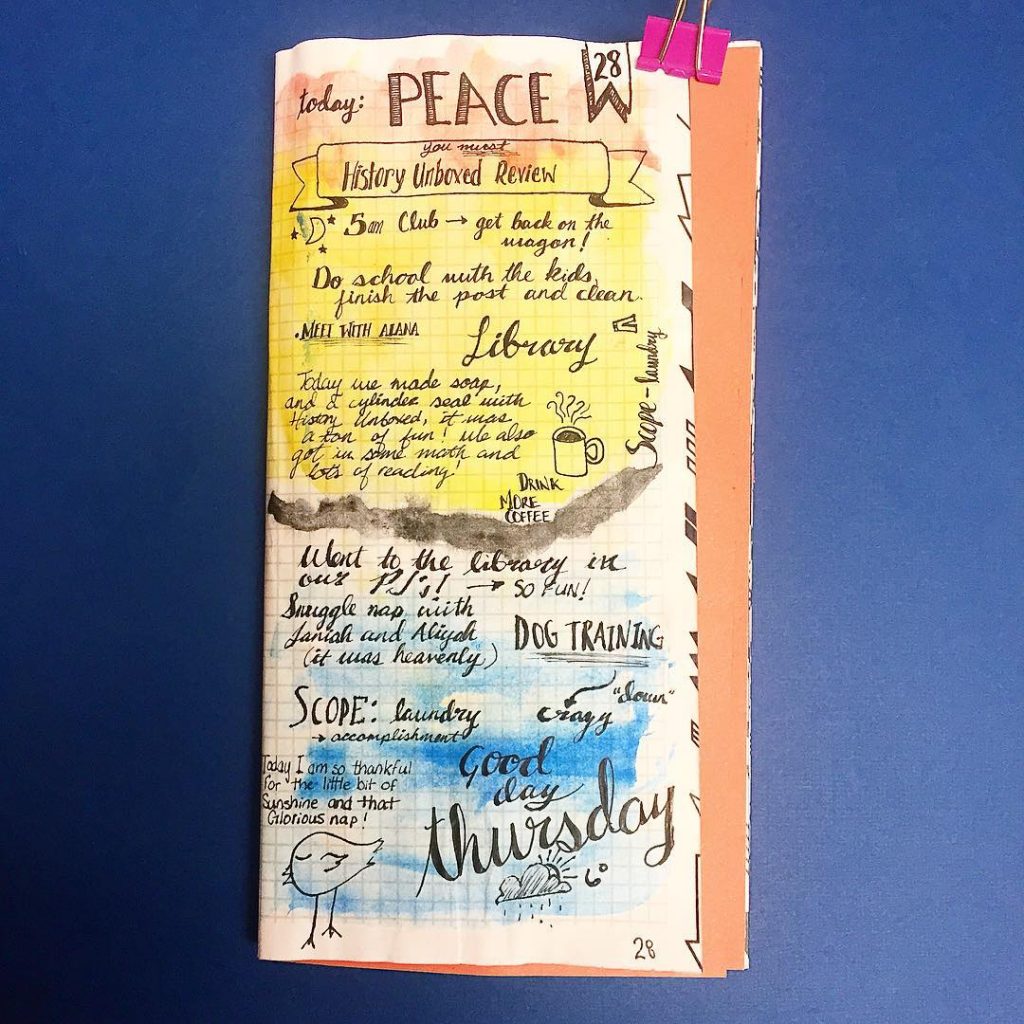 28
today: PEACE
you must
History Unboxed Review
5am Club → get back on the
wagon!
Do school with the kids,
finish the post and clean.
.MEET WITH ALANA
Library
Scope - laundry
Today we made soap,
and a cylinder seal with
History Unboxed, it was
a ton of fun! We also
got in some math and
lots of reading!
DRINK
MORE
COFFEE
Went to the library in
our PJ's! → SO FUN!
Snuggle nap with
Janiah and Aliyah
(it was heavenly)
DOG TRAINING
"down"
crazy
SCOPE: laundry
→ accomplishment
Today I am so thankful
for the little bit of
Sunshine and that
Glorious nap!
Good
day
thursday
6°
28